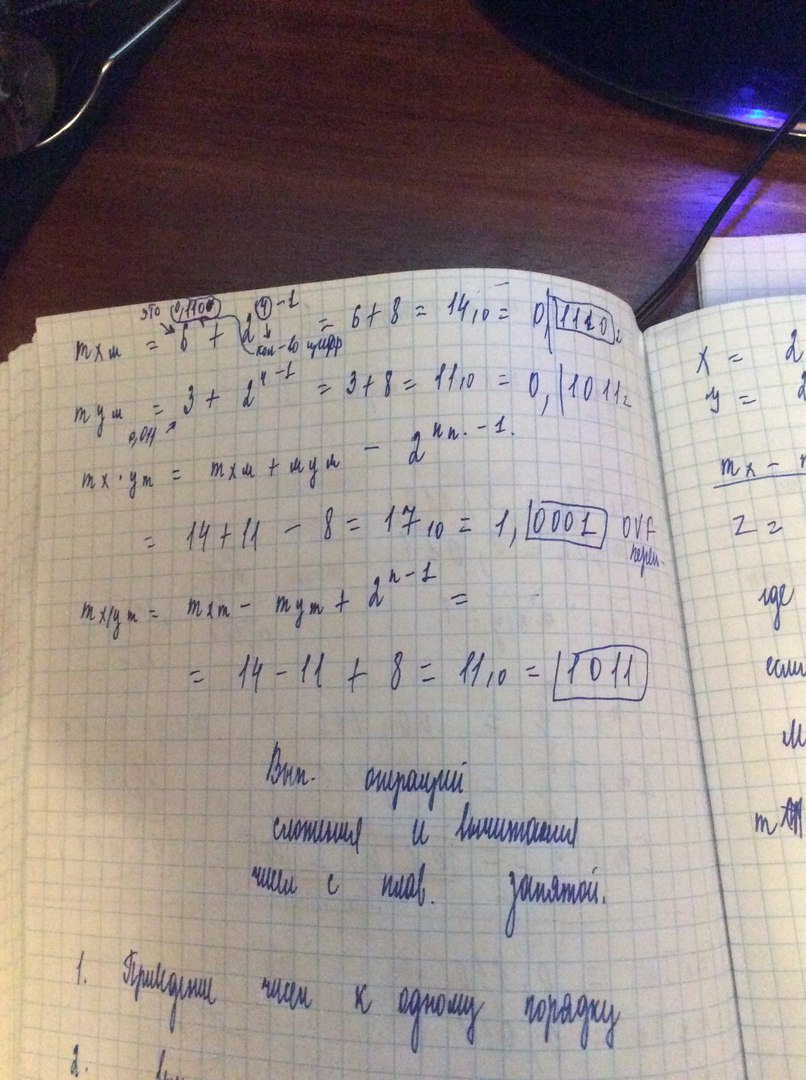 это 0,1100
mxм = 6 + 2^4-1 = 6+8 = 14,0 = 0,|1110₂
кол-во цифр
mуm = 3 + 2^4-1 = 3+8 = 11,0 = 0,|1011₂
0,011
mx·ym = mxм + mум - 2^n-1
= 14+11 - 8 = 17₁₀ = 1,|0001 OVF
переп.
mx/ym = mxm - mym + 2^n-1 =
= 14 - 11 + 8 = 11,0 = |1011
Вып. операций
сложения и вычитания
чисел с плав. запятой.
1. Приведение чисел к одному порядку
2.
x = 2
y = 2
mx -
z =
где
если
m